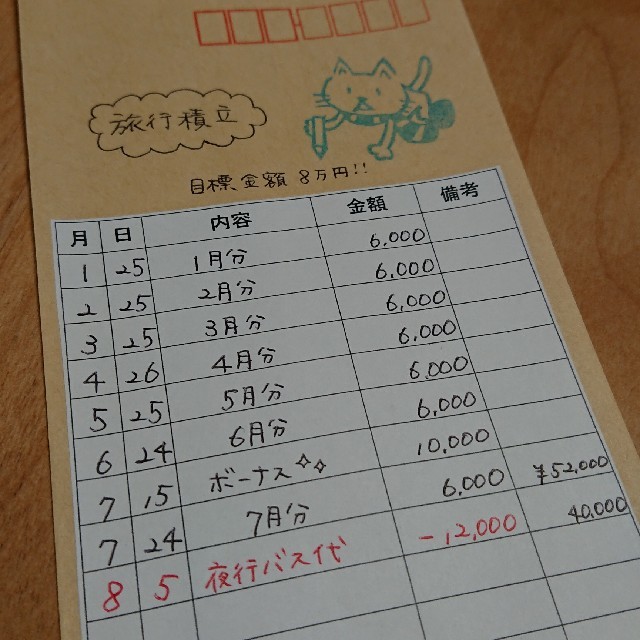 旅行積立
目標金額 8万円!!
月 日 内容 金額 備考
1 25 1月分 6,000
2 25 2月分 6,000
3 25 3月分 6,000
4 26 4月分 6,000
5 25 5月分 6,000
6 24 6月分 6,000
7 15 ボーナス 10,000
7 24 7月分 6,000 ¥52,000
8 5 夜行バス代 -12,000 40,000